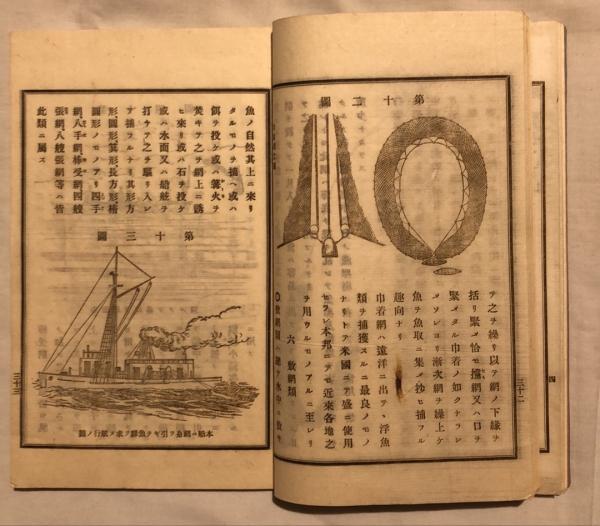 第十二圖
ヲ之ヲ繰リ以テ網ノ下縁ヲ
括リ緊メ恰モ擔網又ハ口ヲ
緊メタル巾着ノ如クナラシ
メソレヨリ漸次網ヲ繰上ケ
魚ヲ魚取ニ集メ抄ヒ捕フル
趣向ナリ
巾着網ハ遠洋ニ出テヽ浮魚
類ヲ捕獲スルニ最良ノモノ
ナリトテ米國ニテ盛ニ使用
セラレ本邦ニテモ近來各地之
ヲ用ウルモノアルニ至レリ
六 敷網類
〇敷網類ハ
水中ニ敷キ
三十二
魚ノ自然其上ニ來リ
タルモノヲ捕ヘ或ハ
餌ヲ投ケ或ハ篝火ヲ
焚キテ之ヲ網上ニ誘
ヒ來リ或ハ石ヲ投ケ
或ハ水面又ハ船舷ヲ
打チテ之ヲ驅リ入レ
テ捕フルナリ其形方
形圓形箕形、長方形楕
圓形ノモノアリ四手
網、八手網、棒受網四艘
張網、八艘張網等ハ皆
此類ニ屬ス
第十三圖
本船ハ網船ヲ引キテ魚群ヲ求メ航行ノ圖
三十三
四